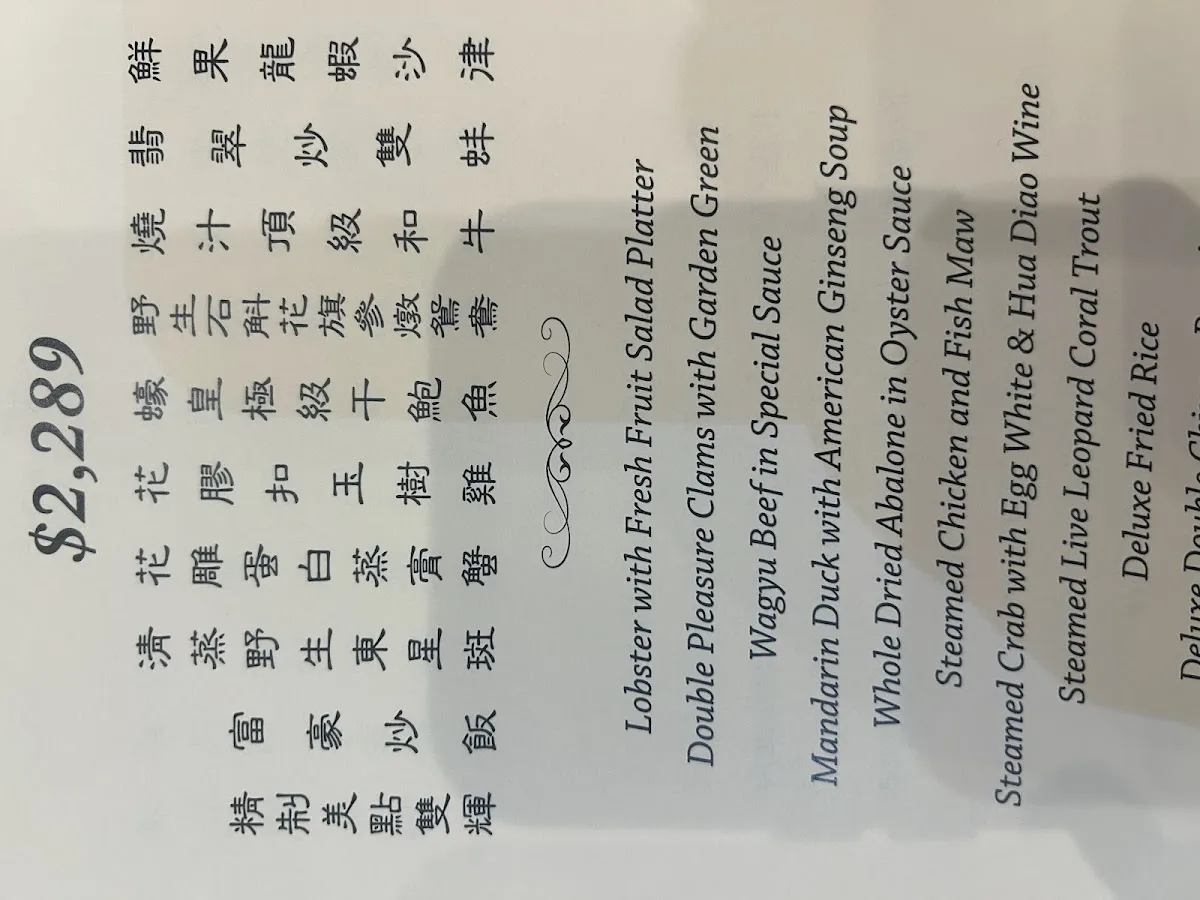 $2,289
鮮果龍蝦沙律
翡翠炒雙蚌
燒汁頂級和牛
野生石斛花旗參燉鴛鴦
蠔皇極級干鮑魚
花膠扣玉樹雞
花雕蛋白蒸膏蟹
清蒸野生東星斑
富豪炒飯
精制美點雙輝
Lobster with Fresh Fruit Salad Platter
Double Pleasure Clams with Garden Green
Wagyu Beef in Special Sauce
Mandarin Duck with American Ginseng Soup
Whole Dried Abalone in Oyster Sauce
Steamed Chicken and Fish Maw
Steamed Crab with Egg White & Hua Diao Wine
Steamed Live Leopard Coral Trout
Deluxe Fried Rice
Deluxe Double